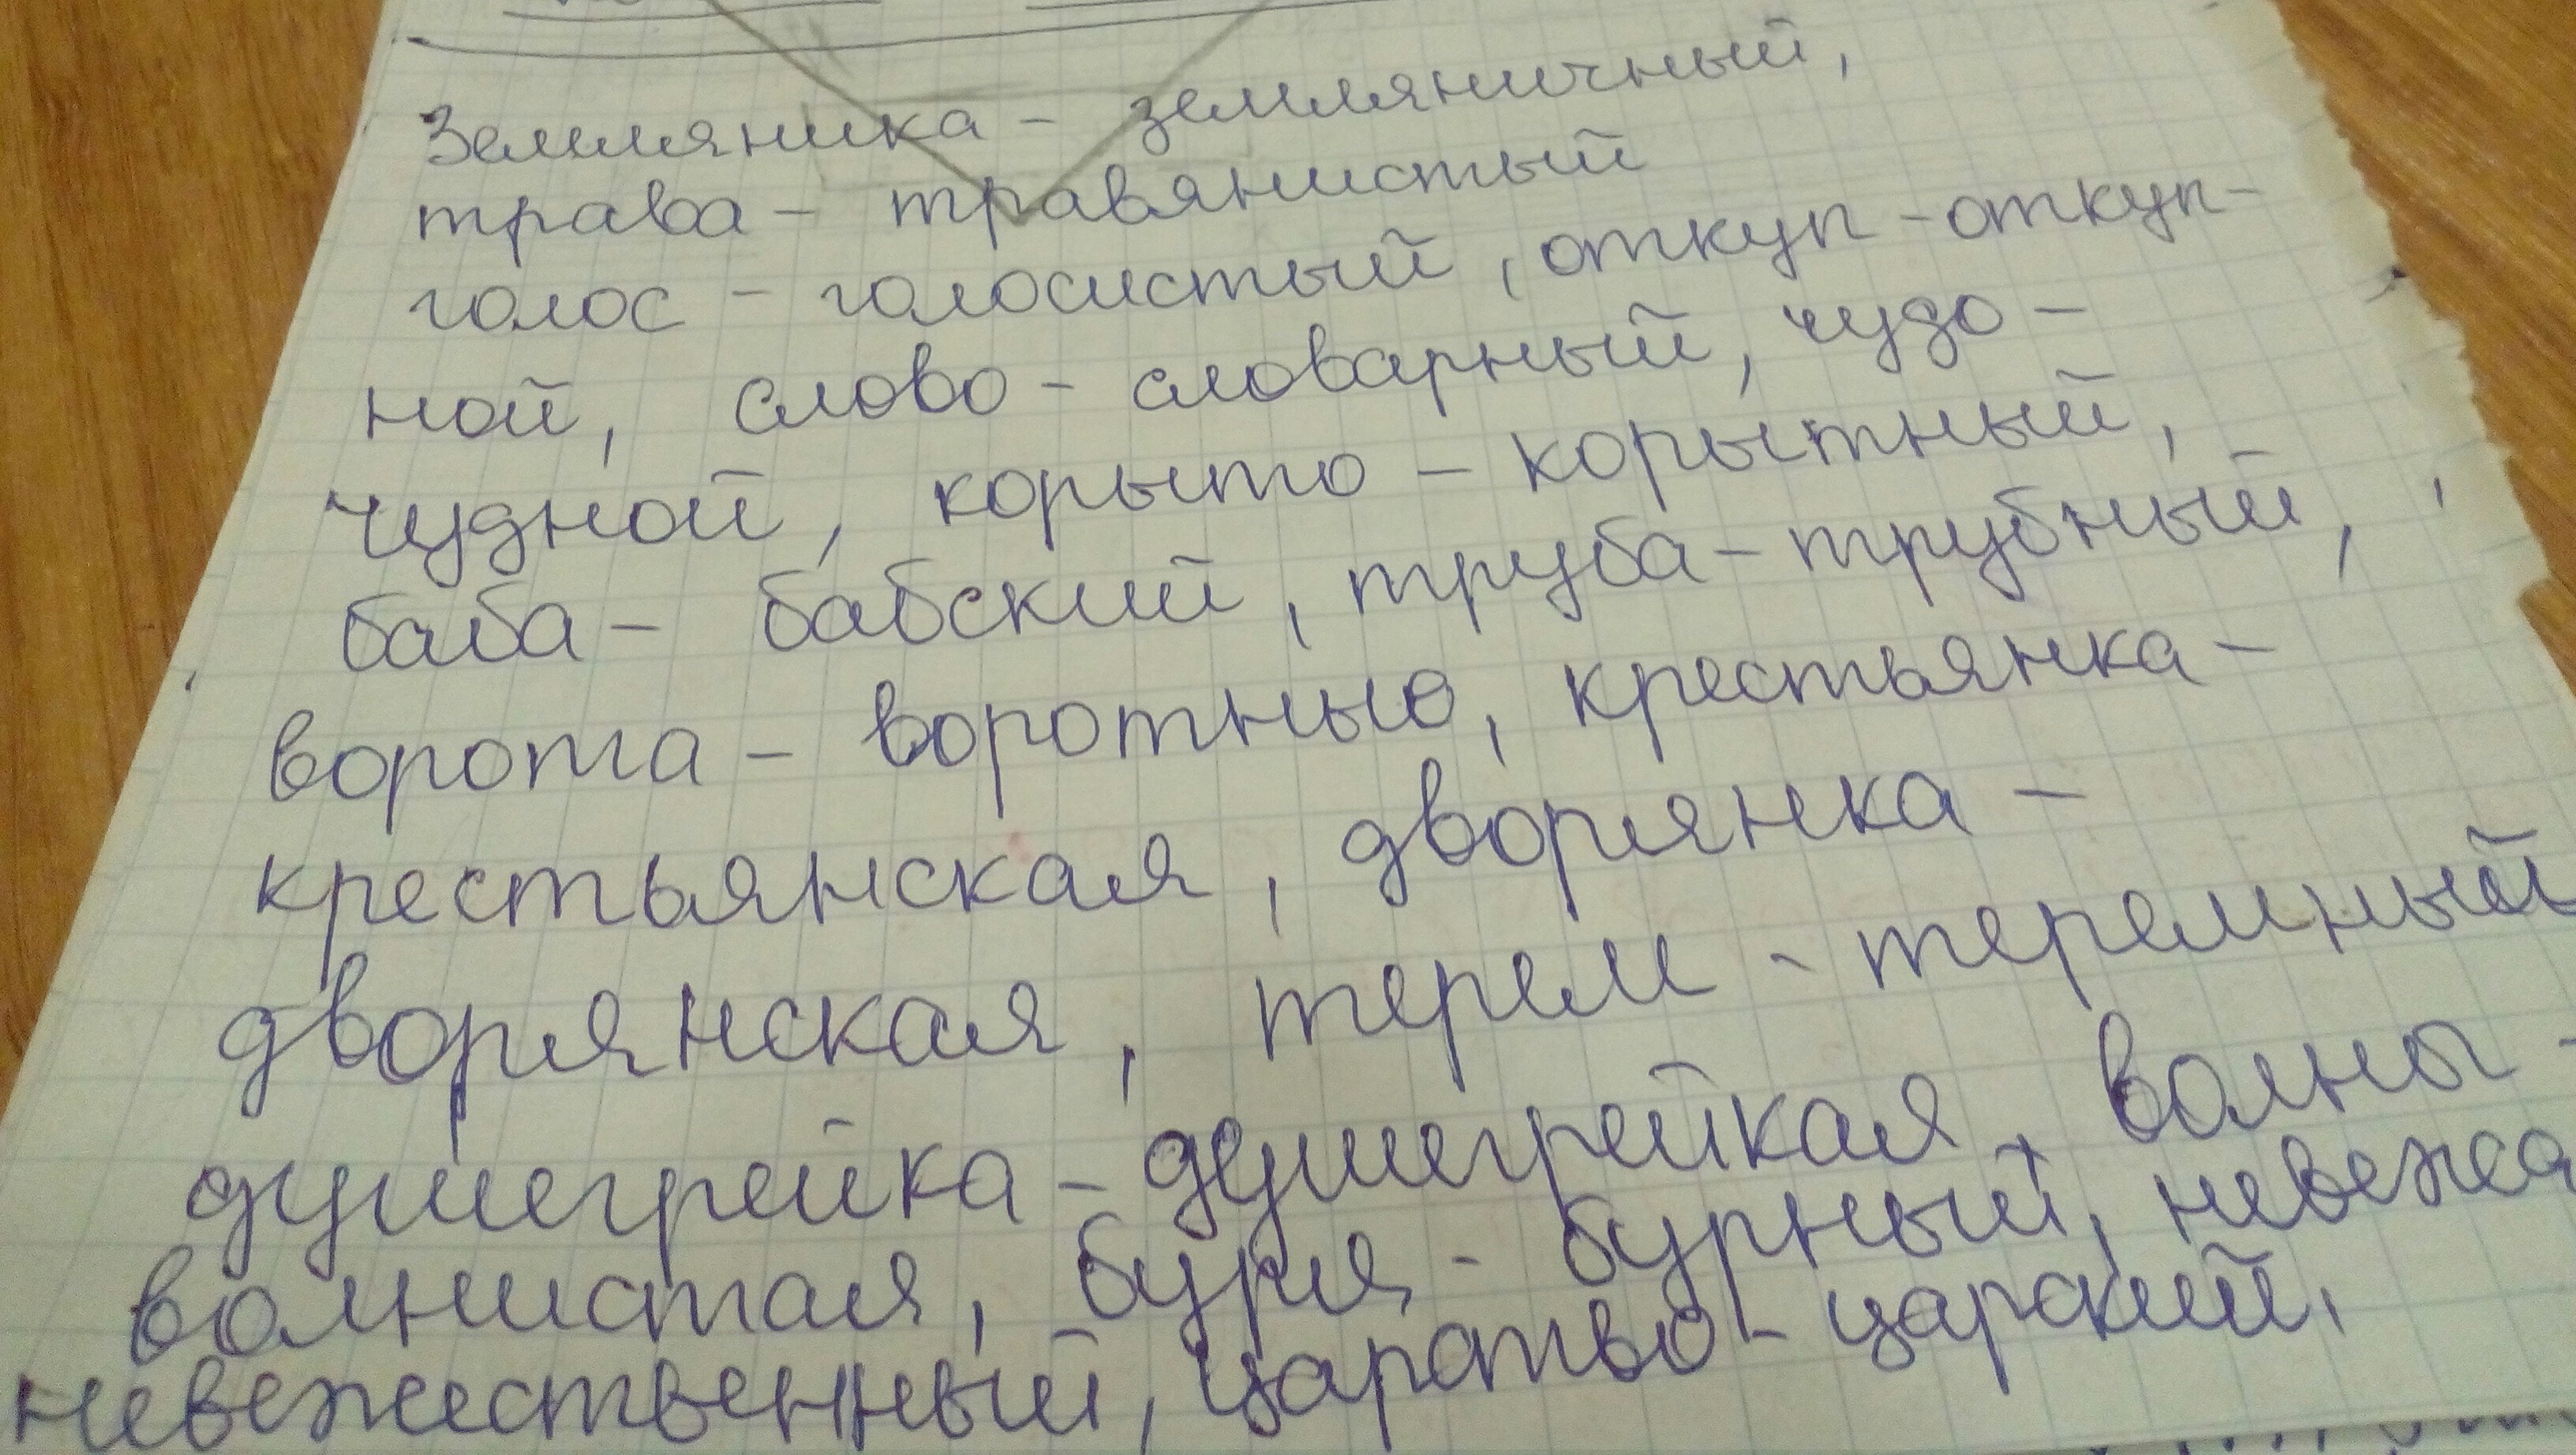 Земляника - земляничный,
трава - травянистый
голос - голосистый, откуп - откуп-
ной, слово - словарный, чудо -
чудной, корыто - корытный,
баба - бабский, труба - трубный,
ворота - воротныо, крестьянка -
крестьянская, дворянка -
дворянская, терем - теремный
душегрейка - душегрейкая, волны -
волнистая, буря - бурный, невежа
невежественный, царство - царский,